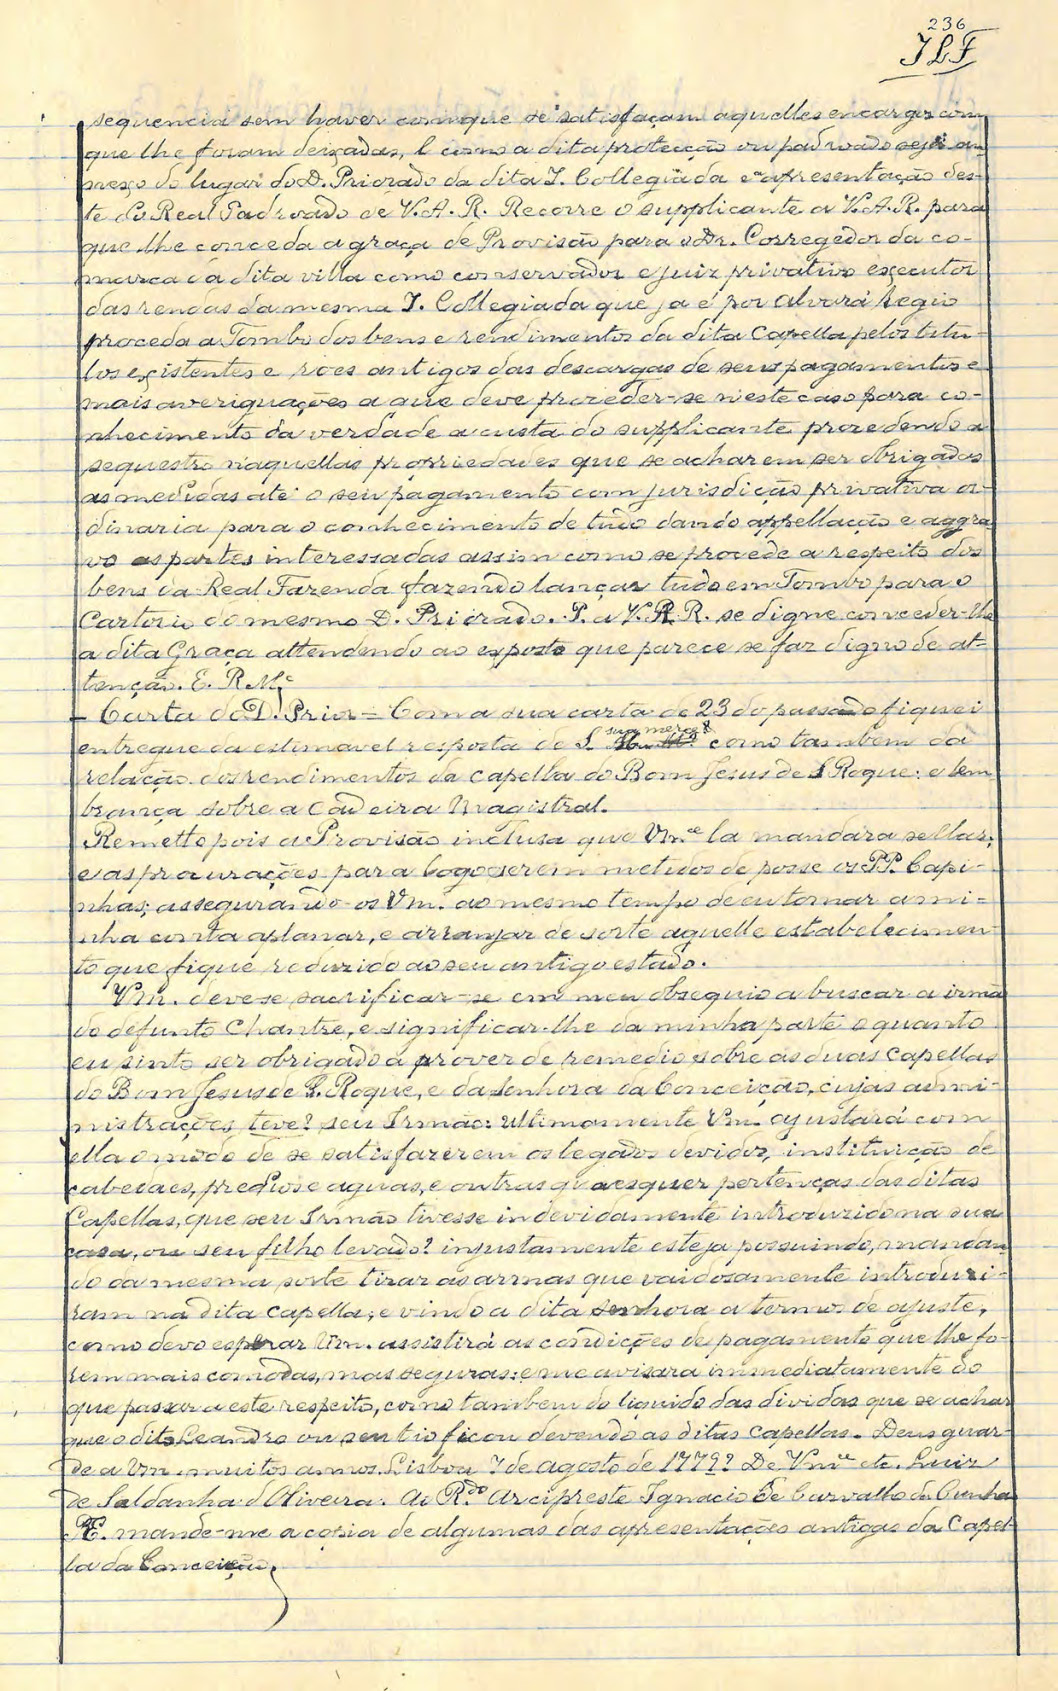 236
JLF
sequencia sem haver com que se satisfaçam aquelles encargos com
que lhe foram deixadas, E como a dita protecção ou padroado seja an-
nexo do lugar do D. Priorado da dita I. Collegiada e apresentação des-
te do Real Padroado de V. A. R. Recorre o supplicante a V. A. R. para
que lhe conceda a graça de Provisão para o Dr. Corregedor da co-
marca da dita villa como conservador e juiz privativo executor
das rendas da mesma I. Collegiada que ja é por Alvará Regio
proceda a Tombo dos bens e rendimentos da dita Capella pelos titu-
los existentes e roes antigos das descargas de seus pagamentos e
mais averiguações a que deve proceder-se n'este caso para co-
nhecimento da verdade a custa do supplicante procedendo a
sequestro n'aquellas propriedades que se acharem ser obrigadas
as medidas até o seu pagamento com jurisdicção privativa or-
dinaria para o conhecimento de tudo dando appellacção e aggra-
vo as partes interessadas assim como se procede a respeito dos
bens da Real Fazenda fazendo lançar tudo em Tombo para o
Cartorio do mesmo D. Priorado. P. a V. A. R. se digne conceder-lhe
a dita Graça attendendo ao exposto que parece se faz digno de at-
tenção. E. R. M.ce
- Carta do D. Prior = Com a sua carta de 23 do passado fiquei
entregue da estimavel resposta de S. sua mercê como tambem da
relação dos rendimentos da capella do Bom Jesus de S Roque: e lem-
brança sobre a Cadeira Magistral.
Remetto pois a Provisão inclusa que Vm.ce la mandará sellar,
e as procurações para logo serem metidos de posse os PP. Capi-
nhas; assegurando-os Vm. ao mesmo tempo de eu tomar a mi-
nha conta aplanar, e arranjar de sorte aquelle estabelecimen-
to que fique reduzido ao seu antigo estado.
Vm. deve-se sacrificar-se em meu obsequio a buscar a irmã
do defunto Chantre, e significar-lhe da minha parte o quanto
eu sinto ser obrigado a prover de remedio sobre as duas capellas
do Bom Jesus de S. Roque, e da Senhora da Conceição, cujas admi-
nistrações teve? seu Irmão: ultimamente Vm. ajustará com
ella o modo de se satisfazerem os legados devidos, instituição de
cabecaes, predios e aguas, e outras quaesquer pertenças das ditas
Capellas, que seu Irmão tivesse indevidamente introduzido na sua
casa, ou seu filho levado? injustamente esteja possuindo, mandan-
do da mesma sorte tirar as armas que vaidosamente introduzi-
ram na dita capella; e vindo a dita senhora a termos de ajuste,
como devo esperar Vm. assistirá as condições de pagamento que lhe fo-
rem mais comodas, mas seguras: e me avisará immediatamente do
que passar a este respeito, como tambem do liquido das dividas que se achar
que o dito Leandro ou seu tio ficou devendo as ditas capellas. Deus guar-
de a Vm. muitos annos. Lisboa 7 de agosto de 1779? De Vm.ce etc. Luiz
de Saldanha d'Oliveira. Ao R.do Arcipreste Ignacio de Carvalho da Cunha
mande-me a copia de algumas das apresentações antigas da Capel-
la da Conceição.